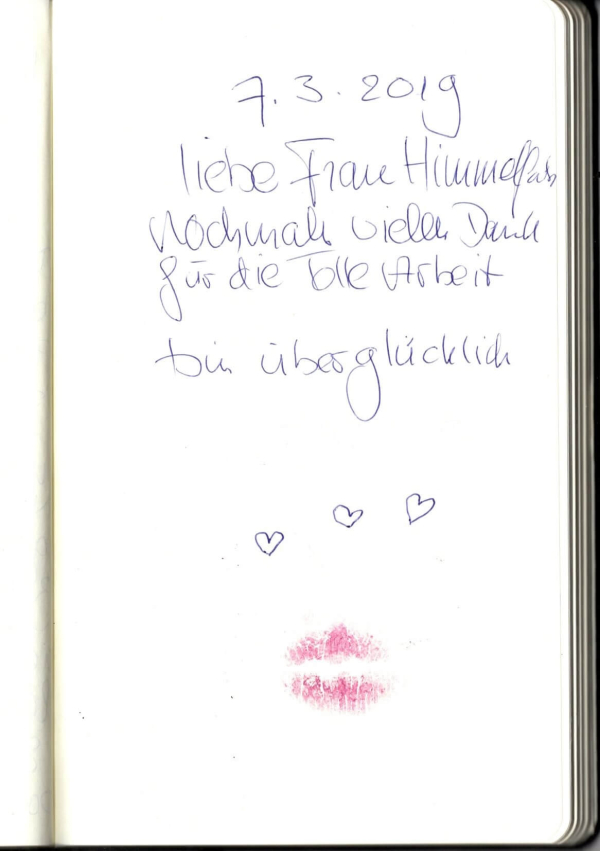 7.3.2019
liebe Frau
Nochmals vielen Dank
für die Tolle Arbeit
bin überglücklich